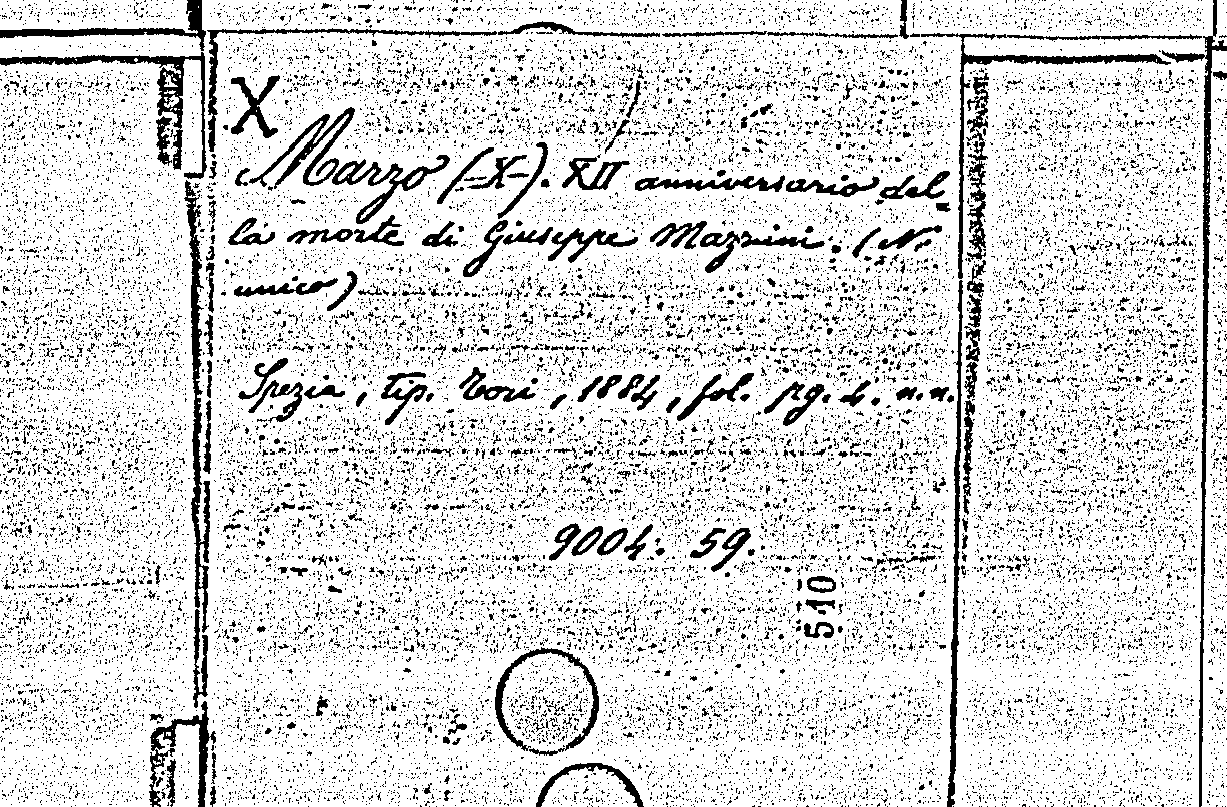 X
Marzo (-X-). XII anniversario del-
la morte di Giuseppe Mazzini. (N.
unico)
Spezia, tip. Tori, 1884, fol. pg. 4. n.n.
9004. 59.
510